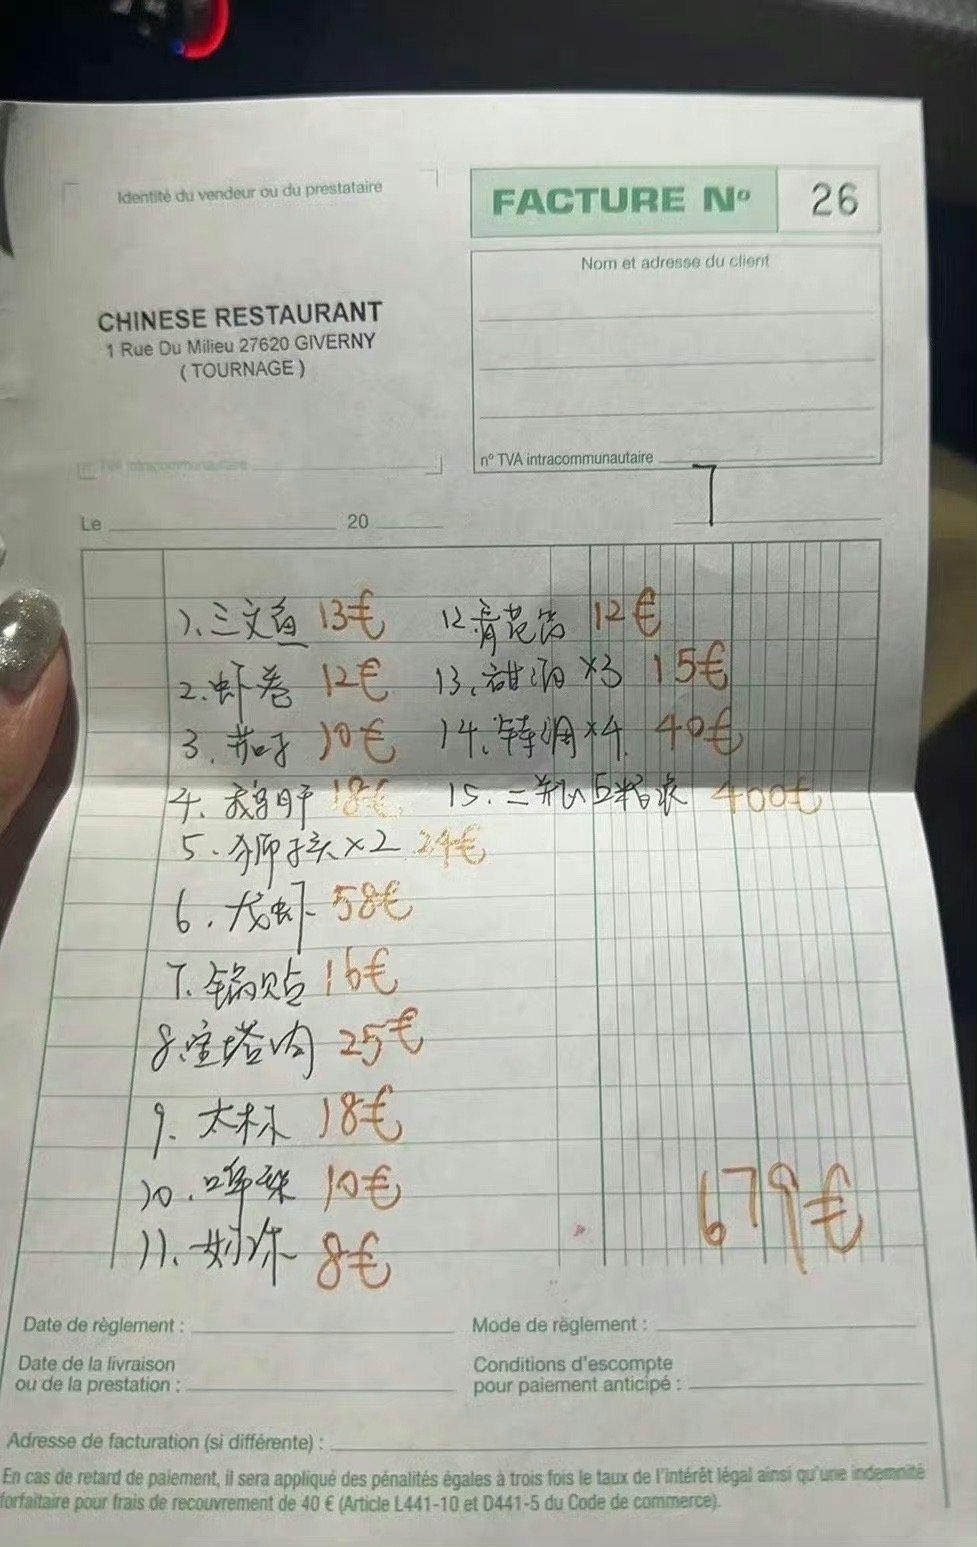 Identité du vendeur ou du prestataire
FACTURE Nº 26
Nom et adresse du client
CHINESE RESTAURANT
1 Rue Du Milieu 27620 GIVERNY
( TOURNAGE )
nº TVA intracommunautaire
Le 20
7
1、三文鱼 13€
2、虾卷 12€
3、茄子 10€
4、鹅肝 18€
5、狮子头×2 24€
6、龙虾 58€
7、锅贴 16€
8、宝塔肉 25€
9、大林 18€
10、啤 10€
11、8€
12 青花 12€
13、甜酒×3 15€
14、特调×4 40€
15、二瓶五粮液 400€
679€
Date de règlement :
Mode de règlement :
Date de la livraison
ou de la prestation :
Conditions d'escompte
pour paiement anticipé :
Adresse de facturation (si différente) :
En cas de retard de paiement, il sera appliqué des pénalités égales à trois fois le taux de l'intérêt légal ainsi qu'une indemnité
forfaitaire pour frais de recouvrement de 40 € (Article L441-10 et D441-5 du Code de commerce).